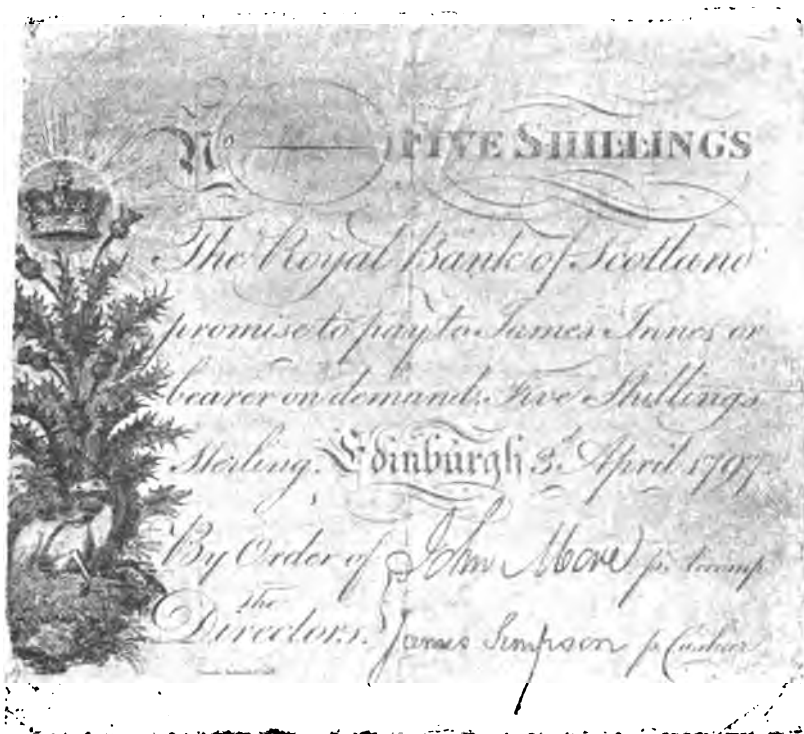 No FIVE SHILLINGS
The Royal Bank of Scotland
promise to pay to James Innes or
bearer on demand, Five Shillings
Sterling. Edinburgh 3d. April 1797
By Order of John More p. Accomp.
the
Directors. James Simpson p. Cashier